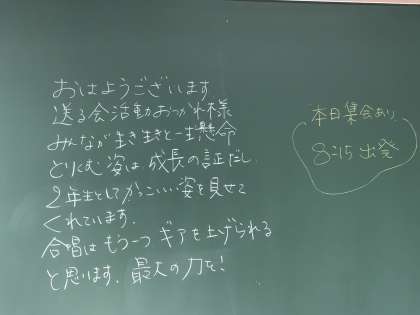 おはようございます
送る会活動おつかれ様
みんなが生き生きと一生懸命
とりくむ姿は、成長の証だし、
2年生としてかっこいい姿を見せて
くれています。
合唱はもう一つギアを上げられる
と思います。最大の力を!
本日集会あり
8:15 出発